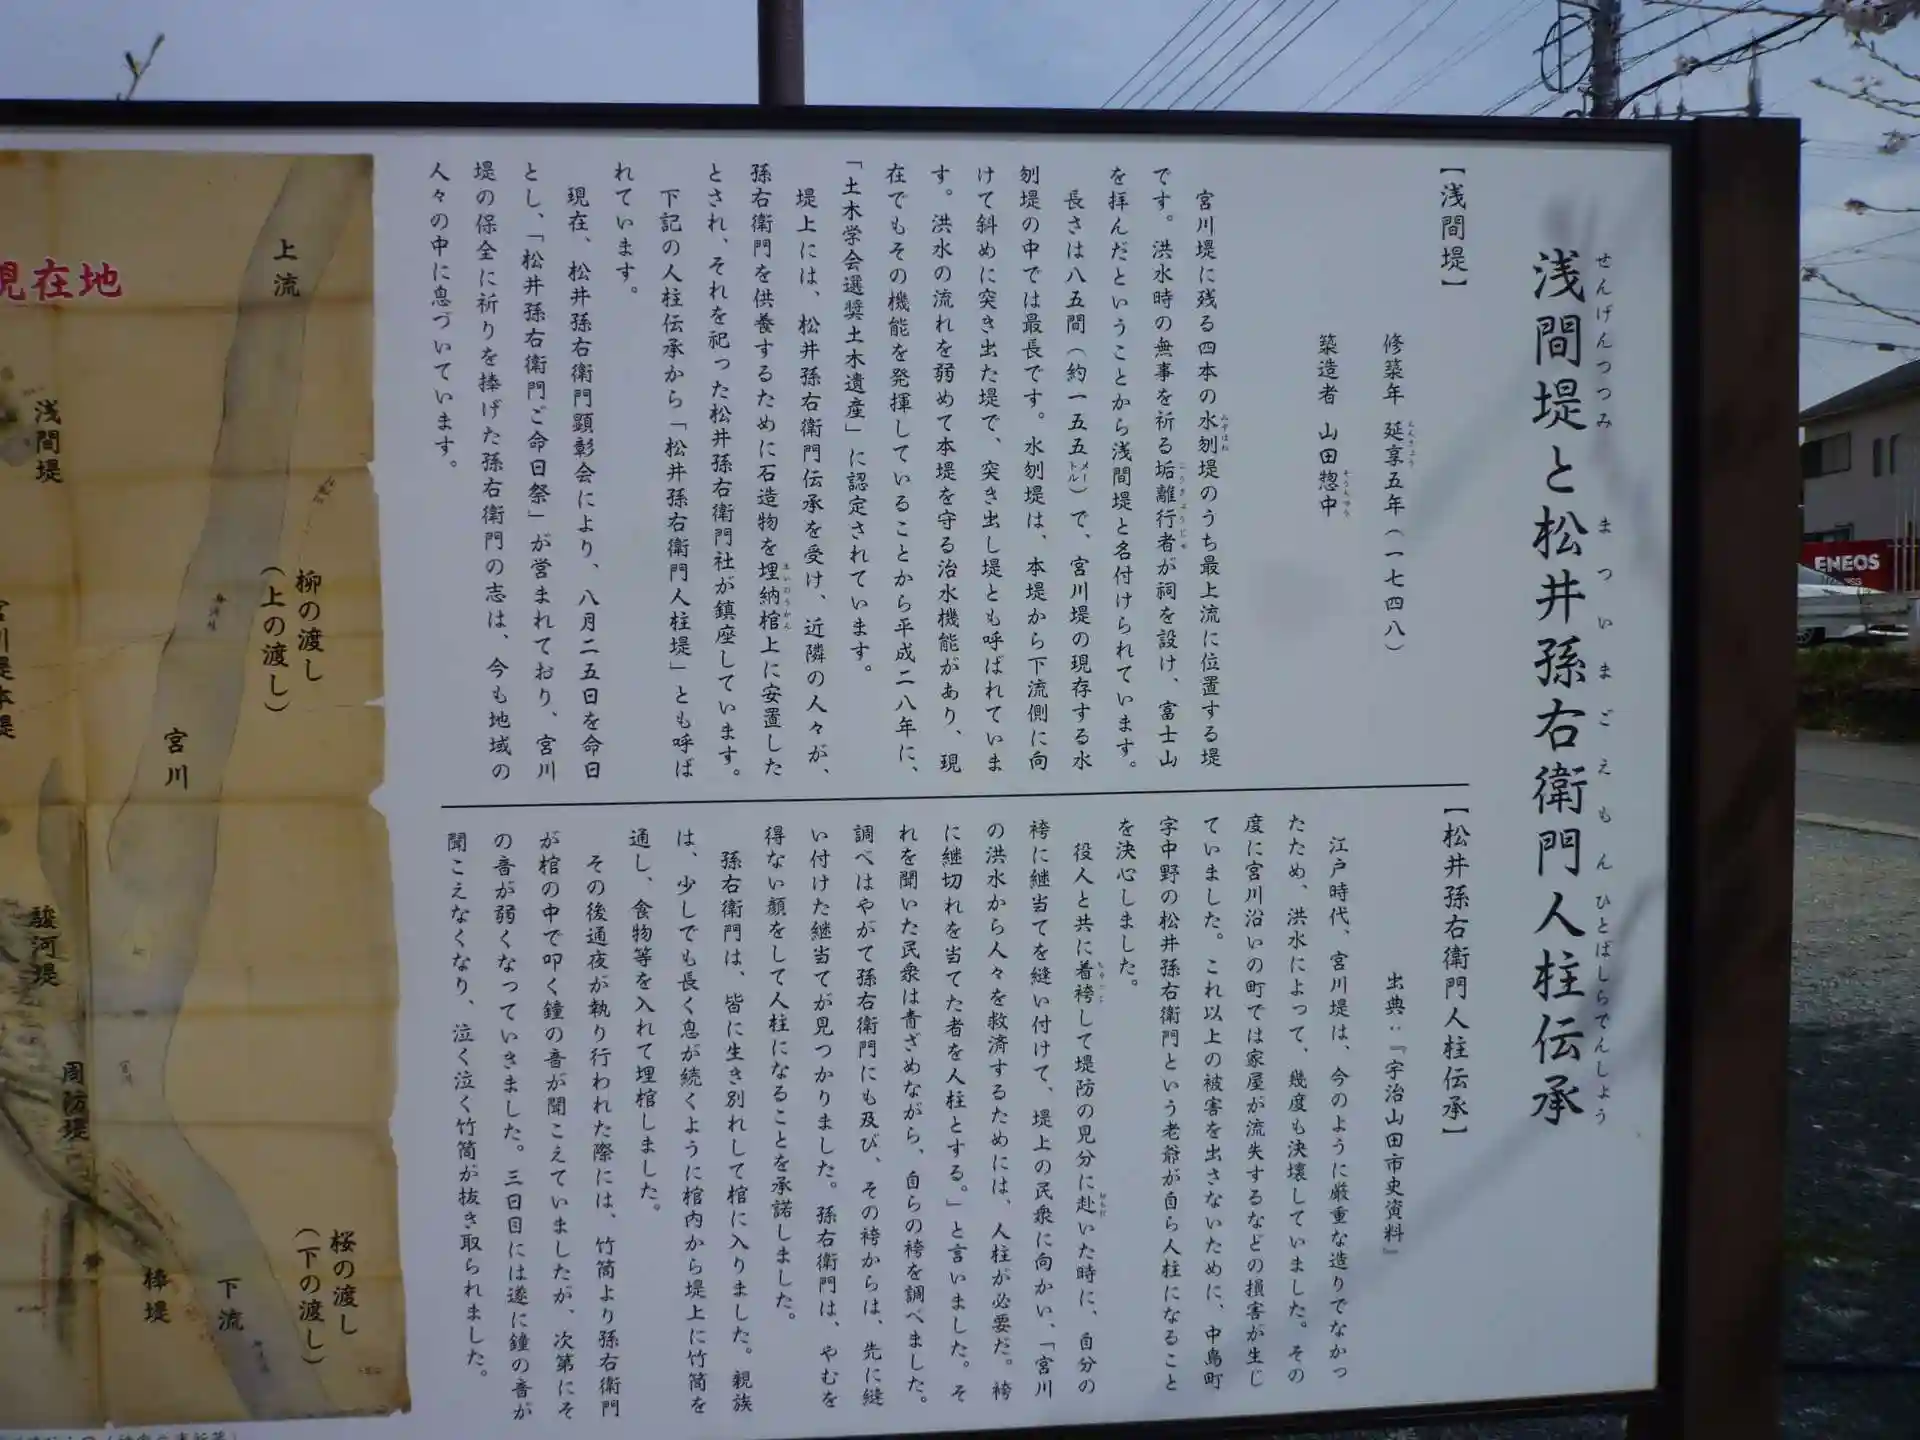 浅間堤と松井孫右衛門人柱伝承
せんげんつつみ まついまごえもんひとばしらでんしょう
【浅間堤】
修築年 延享五年(一七四八)
えんきょう
築造者 山田惣中
そうちゅう
宮川堤に残る四本の水刎堤のうち最上流に位置する堤
みずはね
です。洪水時の無事を祈る垢離行者が祠を設け、富士山
こうりぎょうじゃ
を拝んだということから浅間堤と名付けられています。
長さは八五間(約一五五メートル)で、宮川堤の現存する水
刎堤の中では最長です。水刎堤は、本堤から下流側に向
けて斜めに突き出た堤で、突き出し堤とも呼ばれていま
す。洪水の流れを弱めて本堤を守る治水機能があり、現
在でもその機能を発揮していることから平成二八年に、
「土木学会選奨土木遺産」に認定されています。
堤上には、松井孫右衛門伝承を受け、近隣の人々が、
孫右衛門を供養するために石造物を埋納棺上に安置した
まいのうかん
とされ、それを祀った松井孫右衛門社が鎮座しています。
下記の人柱伝承から「松井孫右衛門人柱堤」とも呼ば
れています。
現在、松井孫右衛門顕彰会により、八月二五日を命日
とし、「松井孫右衛門ご命日祭」が営まれており、宮川
堤の保全に祈りを捧げた孫右衛門の志は、今も地域の
人々の中に息づいています。
【松井孫右衛門人柱伝承】
出典:『宇治山田市史資料』
江戸時代、宮川堤は、今のように厳重な造りでなかっ
たため、洪水によって、幾度も決壊していました。その
度に宮川沿いの町では家屋が流失するなどの損害が生じ
ていました。これ以上の被害を出さないために、中島町
字中野の松井孫右衛門という老爺が自ら人柱になること
を決心しました。
役人と共に着袴して堤防の見分に赴いた時に、自分の
袴に継当てを縫い付けて、堤上の民衆に向かい、「宮川
の洪水から人々を救済するためには、人柱が必要だ。袴
に継切れを当てた者を人柱とする。」と言いました。そ
れを聞いた民衆は青ざめながら、自らの袴を調べました。
調べはやがて孫右衛門にも及び、その袴からは、先に縫
い付けた継当てが見つかりました。孫右衛門は、やむを
得ない顔をして人柱になることを承諾しました。
孫右衛門は、皆に生き別れして棺に入りました。親族
は、少しでも長く息が続くように棺内から堤上に竹筒を
通し、食物等を入れて埋棺しました。
その後通夜が執り行われた際には、竹筒より孫右衛門
が棺の中で叩く鐘の音が聞こえていましたが、次第にそ
の音が弱くなっていきました。三日目には遂に鐘の音が
聞こえなくなり、泣く泣く竹筒が抜き取られました。
上流
現在地
浅間堤
柳の渡し
(上の渡し)
宮川
宮川堤本堤
駿河堤
周防堤
棒堤
下流
桜の渡し
(下の渡し)
ENEOS